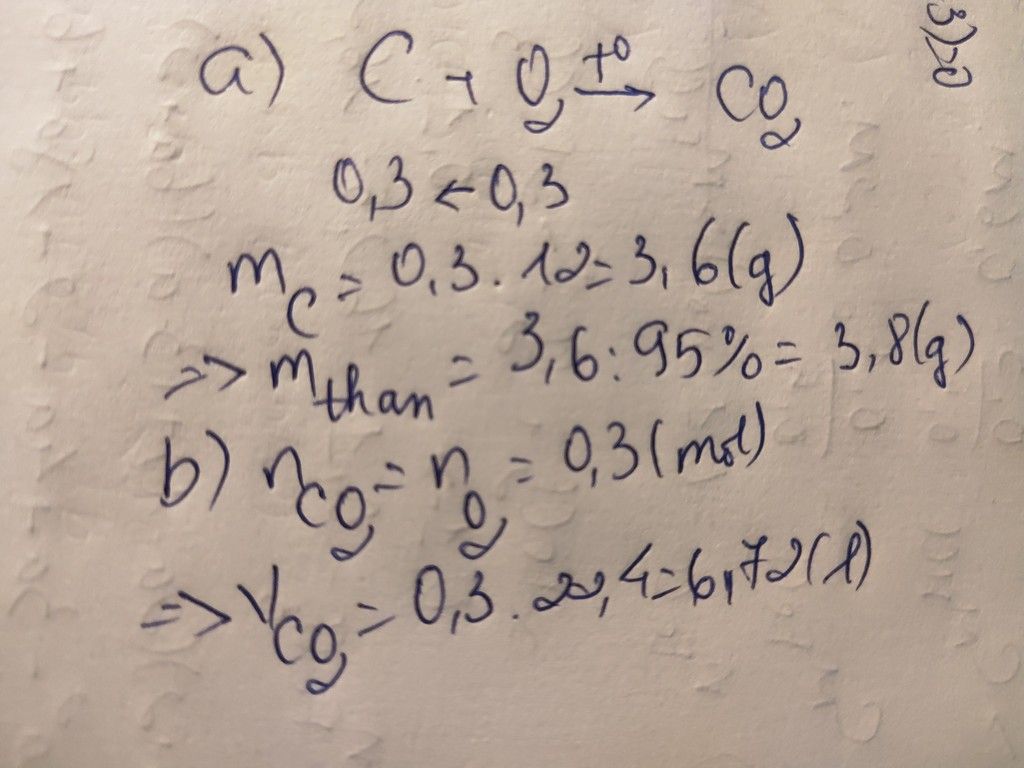 a) C + O₂ t⁰→ CO₂
0,3 ← 0,3
m_C = 0,3 . 12 = 3,6 (g)
=> m_than = 3,6 : 95% = 3,8 (g)
b) n_CO₂ = n_O₂ = 0,3 (mol)
=> V_CO₂ = 0,3 . 22,4 = 6,72 (l)